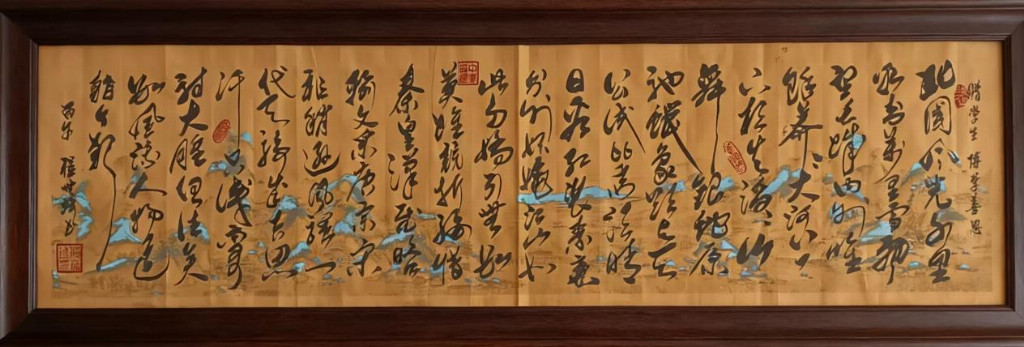 赠学生 博学善思
北國风光千里
冰封万里雪飘
望长城内外惟
馀莽莽大河上
下顿失滔滔山
舞银蛇原
驰蜡象欲与天
公试比高须晴
日看红装素裹
分外妖娆江山如
此多娇引無数
英雄竞折腰惜
秦皇漢武略
输文采唐宗宋
祖稍逊风骚一
代天骄成吉思
汗只識弯弓
射大雕俱往矣
数风流人物还
看今朝